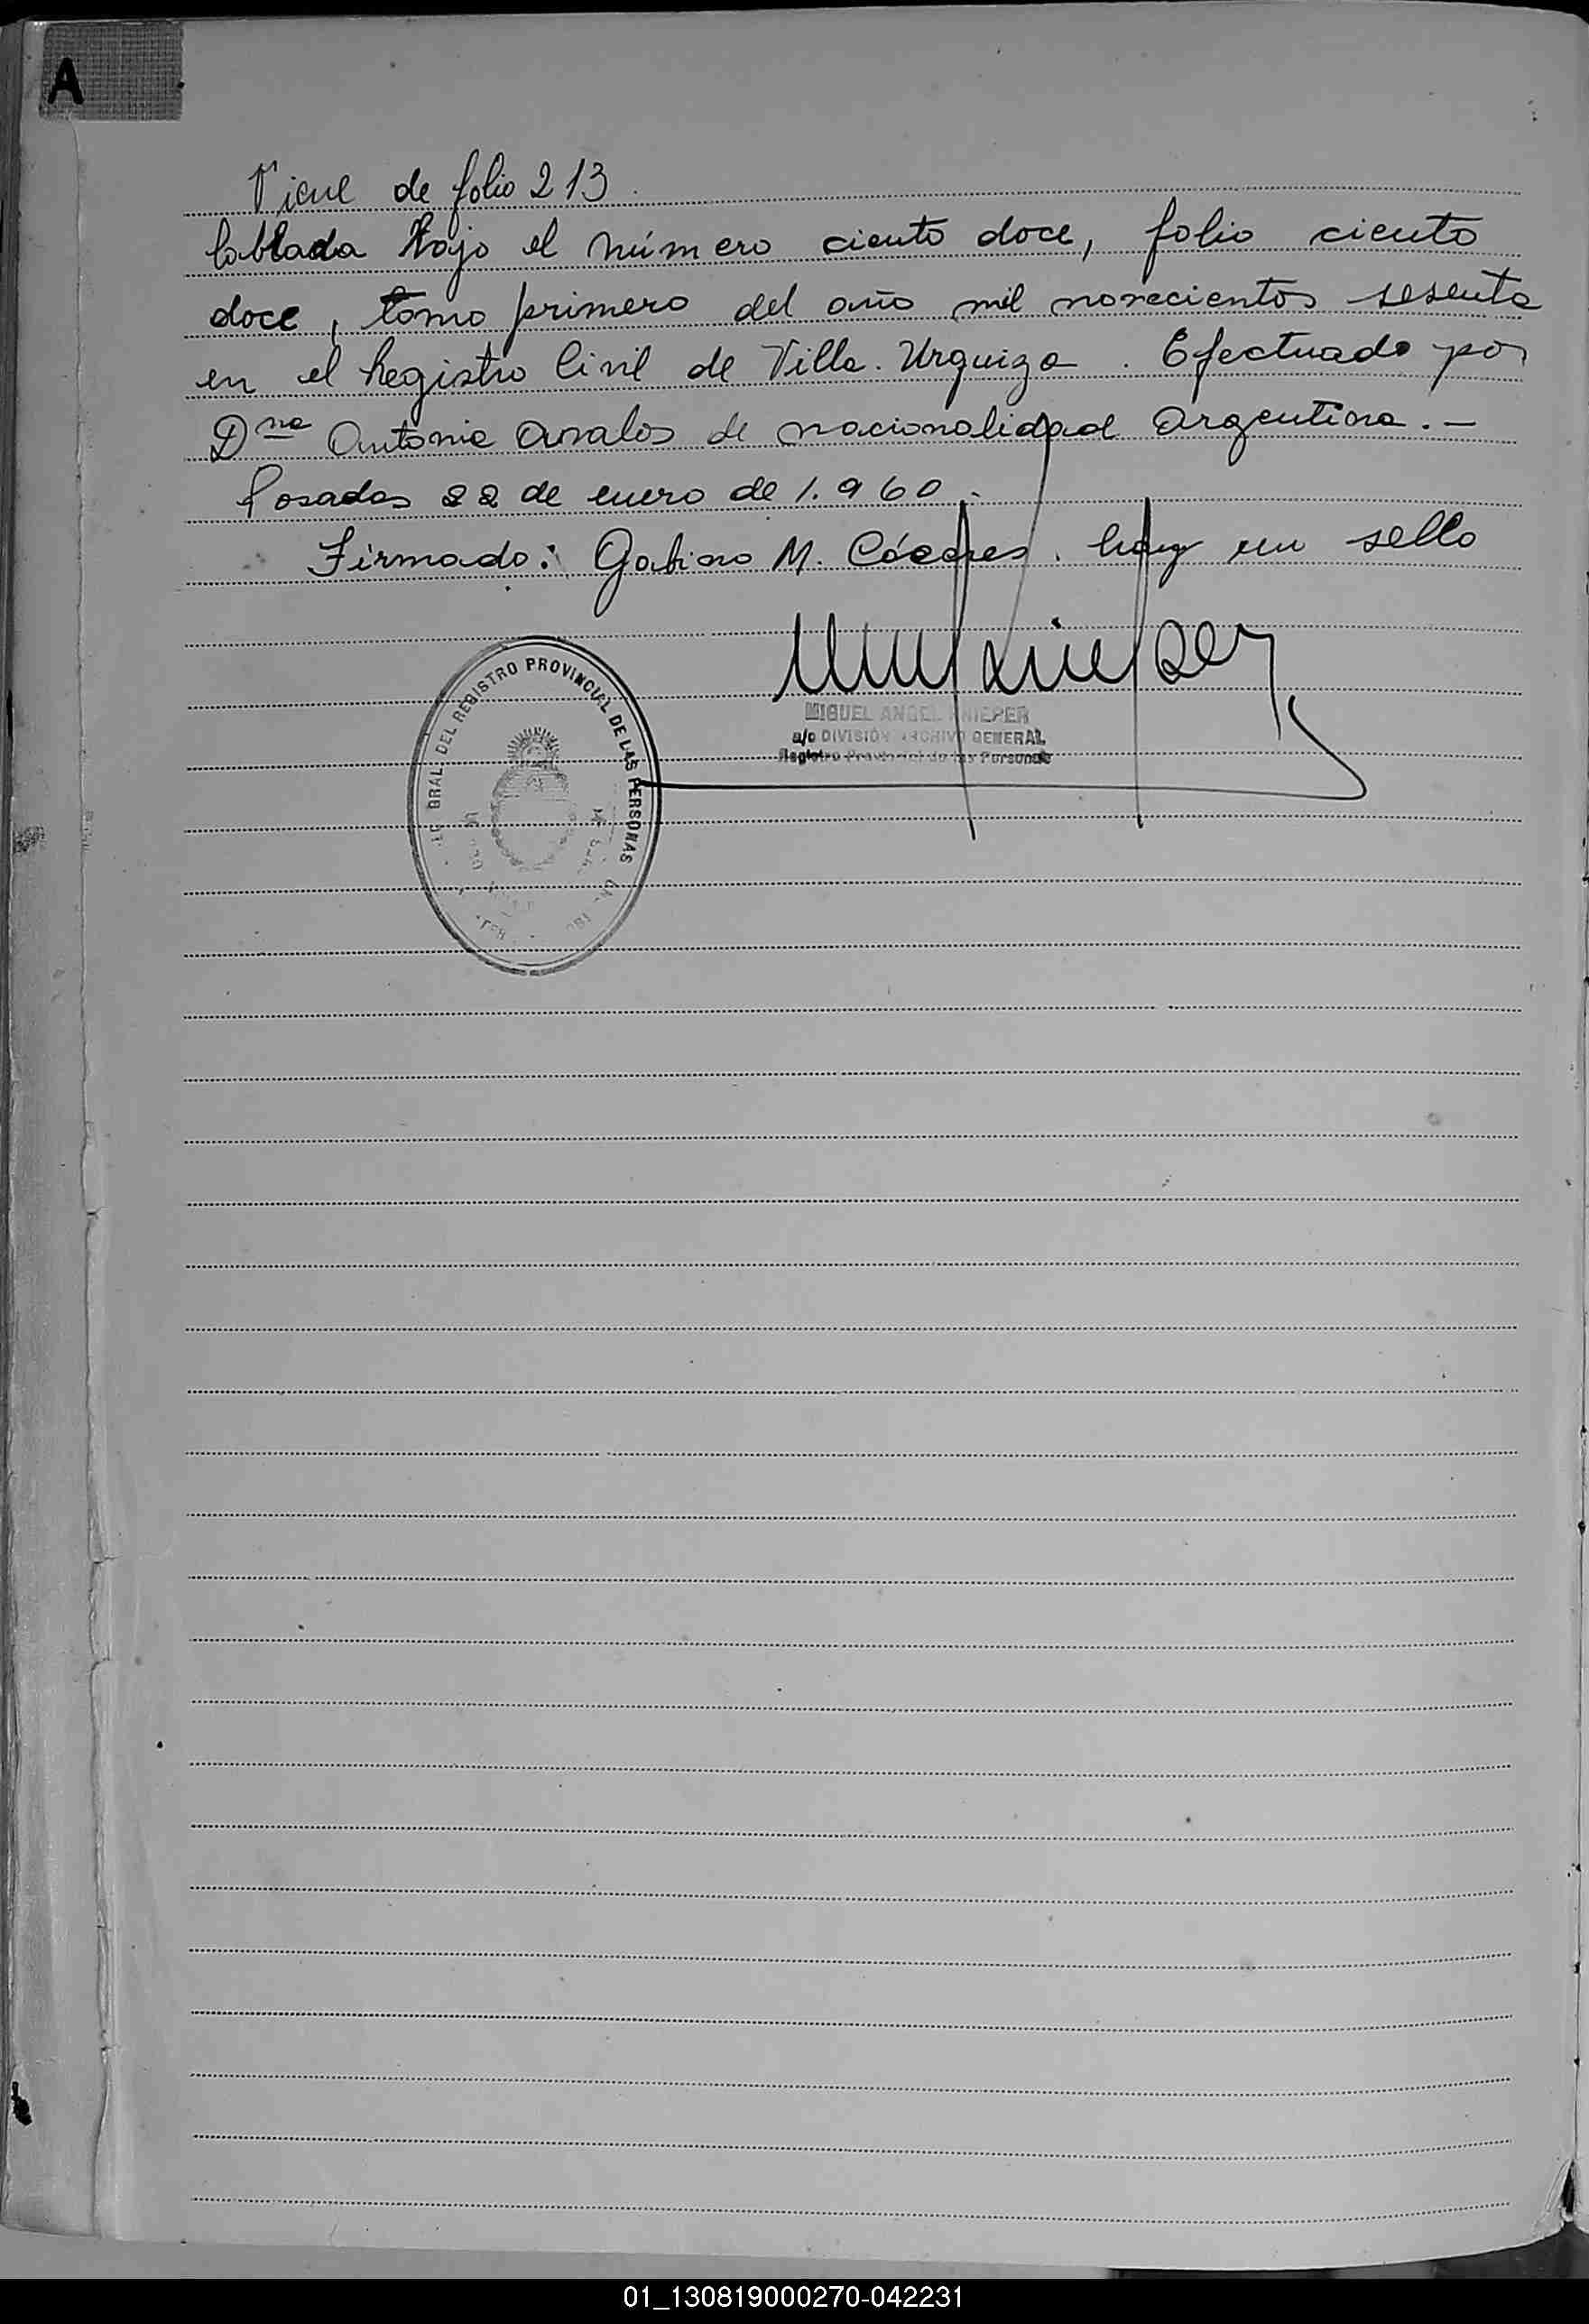 A
Viene de folio 213
Poblada bajo el número ciento doce, folio ciento
doce, tomo primero del año mil novecientos sesenta
en el Registro Civil de Villa Urquiza. Efectuado por
Dña Antonia Avalos de nacionalidad Argentina.-
Posadas 22 de enero de 1.960.-
Firmado: Gabino M. Cáceres. hay un sello
MIGUEL ANGEL KNIEPER
a/c DIVISIÓN ARCHIVO GENERAL
Registro Provincial de las Personas
GRAL. DEL REGISTRO PROVINCIAL DE LAS PERSONAS
01_130819000270-042231